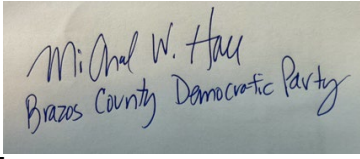 Michal W. Hall
Brazos County Democratic Party